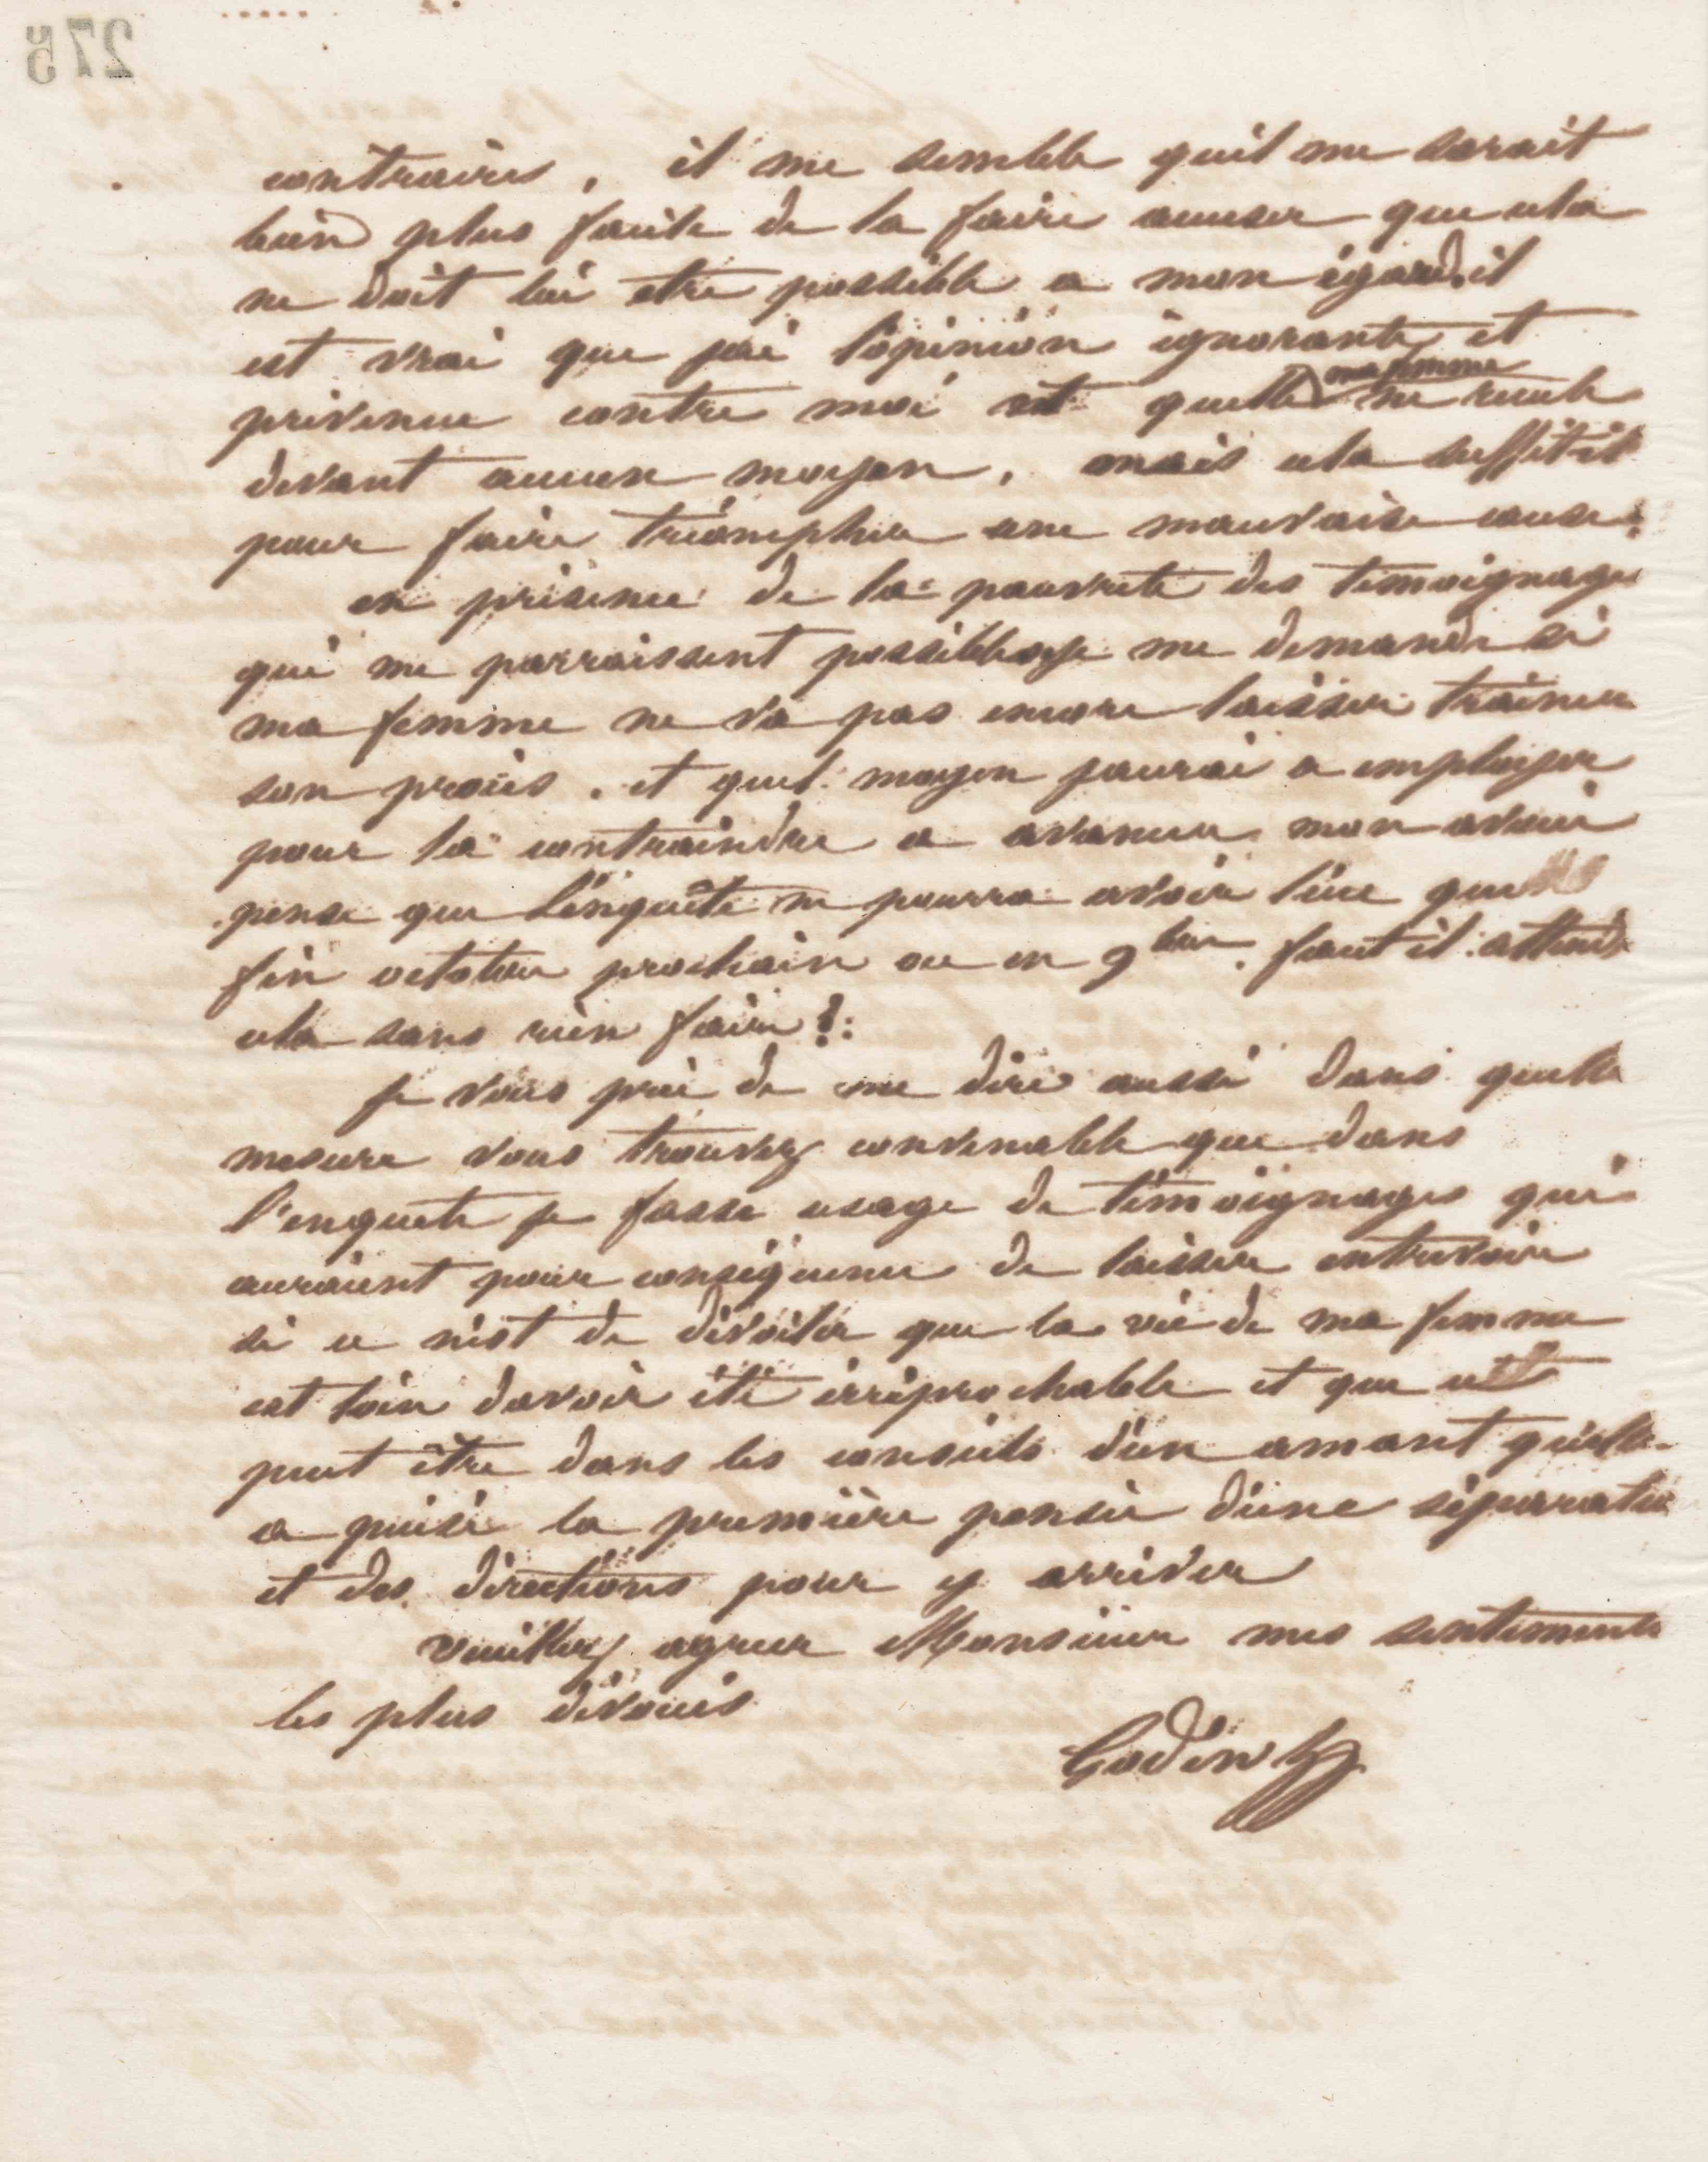 275
contraires, il me semble quil me serait
bien plus facile de la faire accuser que cela
ne doit lui etre possible a mon égard. il
est vrai que jai l'opinion ignorante et
prévenue contre moi et quelle ma femme ne recule
devant aucun moyen, mais cela suffit-il
pour faire triompher une mauvaise cause.
en présence de la pauvreté des témoignages
qui me parraissent possibles je me demande si
ma femme ne va pas encore laisser trainer
son procès. et quel moyen jaurai a employer
pour la contraindre a avancer mon avoué
pense que l'enquête ne pourra avoir lieu que
fin octobre prochain ou en 9bre. faut il attendre
cela sans rien faire?
je vous prie de me dire aussi dans quelle
mesure vous trouvez convenable que dans
l'enquete je fasse usage de témoignages qui
auraient pour conséquence de laisser entrevoir
si ce n'est de dévoiler que la vie de ma femme
est loin davoir été irréprochable et que cest
peut être dans les conseils d'un amant quelle
a puisé la première pensée d'une séparation
et des directions pour y arriver
veuillez agreer Monsieur mes sentiments
les plus dévoués
Godin